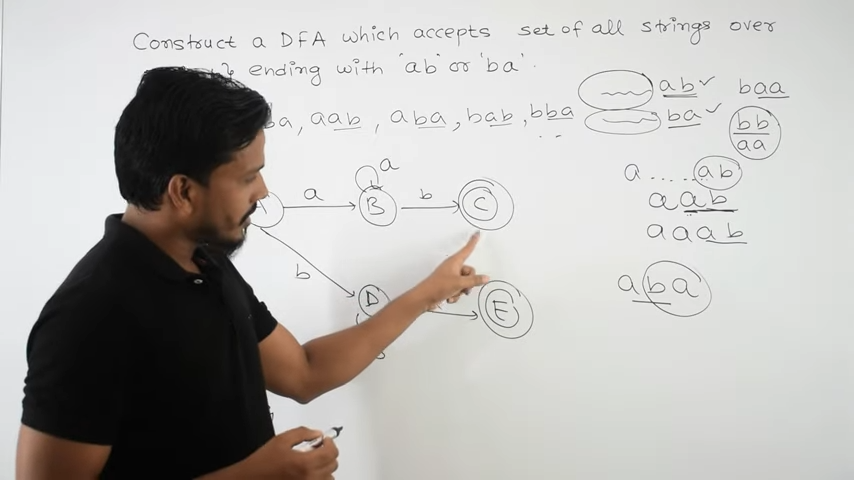 Construct a DFA which accepts set of all strings over
ending with 'ab' or 'ba'.
ab✓ baa
ba, aab, aba, bab, bba ba✓ bb
.. aa
a ...... ab
aab
aaab
aba
a
a B b C
b
D E